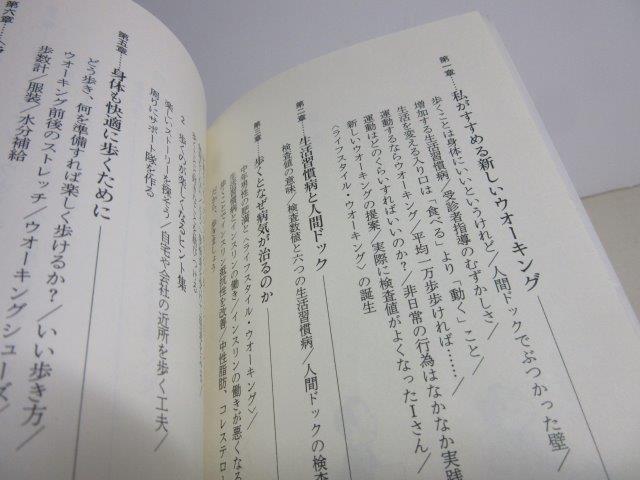 第一章……私がすすめる新しいウオーキング
歩くことは身体にいいというけれど／人間ドックでぶつかった壁／
増加する生活習慣病／受診者指導のむずかしさ／
生活を変える入り口は「食べる」より「動く」こと／
運動するならウオーキング／平均一万歩歩ければ……／非日常の行為はなかなか実践
運動はどのくらいすればいいのか？／実際に検査値がよくなったIさん／
新しいウオーキングの提案／〈ライフスタイル・ウオーキング〉の誕生
第二章……生活習慣病と人間ドック
検査値の意味／検査数値と六つの生活習慣病／人間ドックの検査
第三章……歩くとなぜ病気が治るのか
中年男性の肥満と〈ライフスタイル・ウオーキング〉／
生活習慣病とインスリンの働き／インスリンの働きが悪くなる
歩くことでインスリン抵抗性を改善／中性脂肪、コレステロー
2 歩くのが楽しくなるヒント集
楽しいストーリーを探そう／自宅や会社の近所を歩く工夫／
周りにサポート隊を作る
第五章……身体も快適に歩くために
どう歩き、何を準備すれば楽しく歩けるか？／いい歩き方／
ウオーキング前後のストレッチ／ウオーキングシューズ／
歩数計／服装／水分補給
第六章……